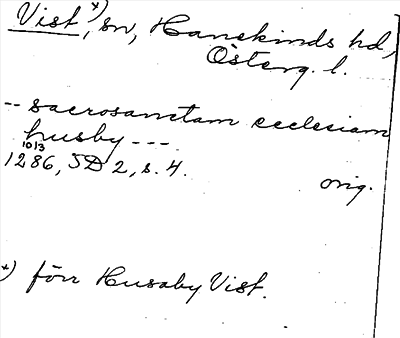 Vist*), sn, Hanekinds hd,
Österg. l.
-- sacrosanctam ecclesiam
husby ---
10/3
1286, SD 2, s. 4.
orig.
*) förr Husaby Vist.